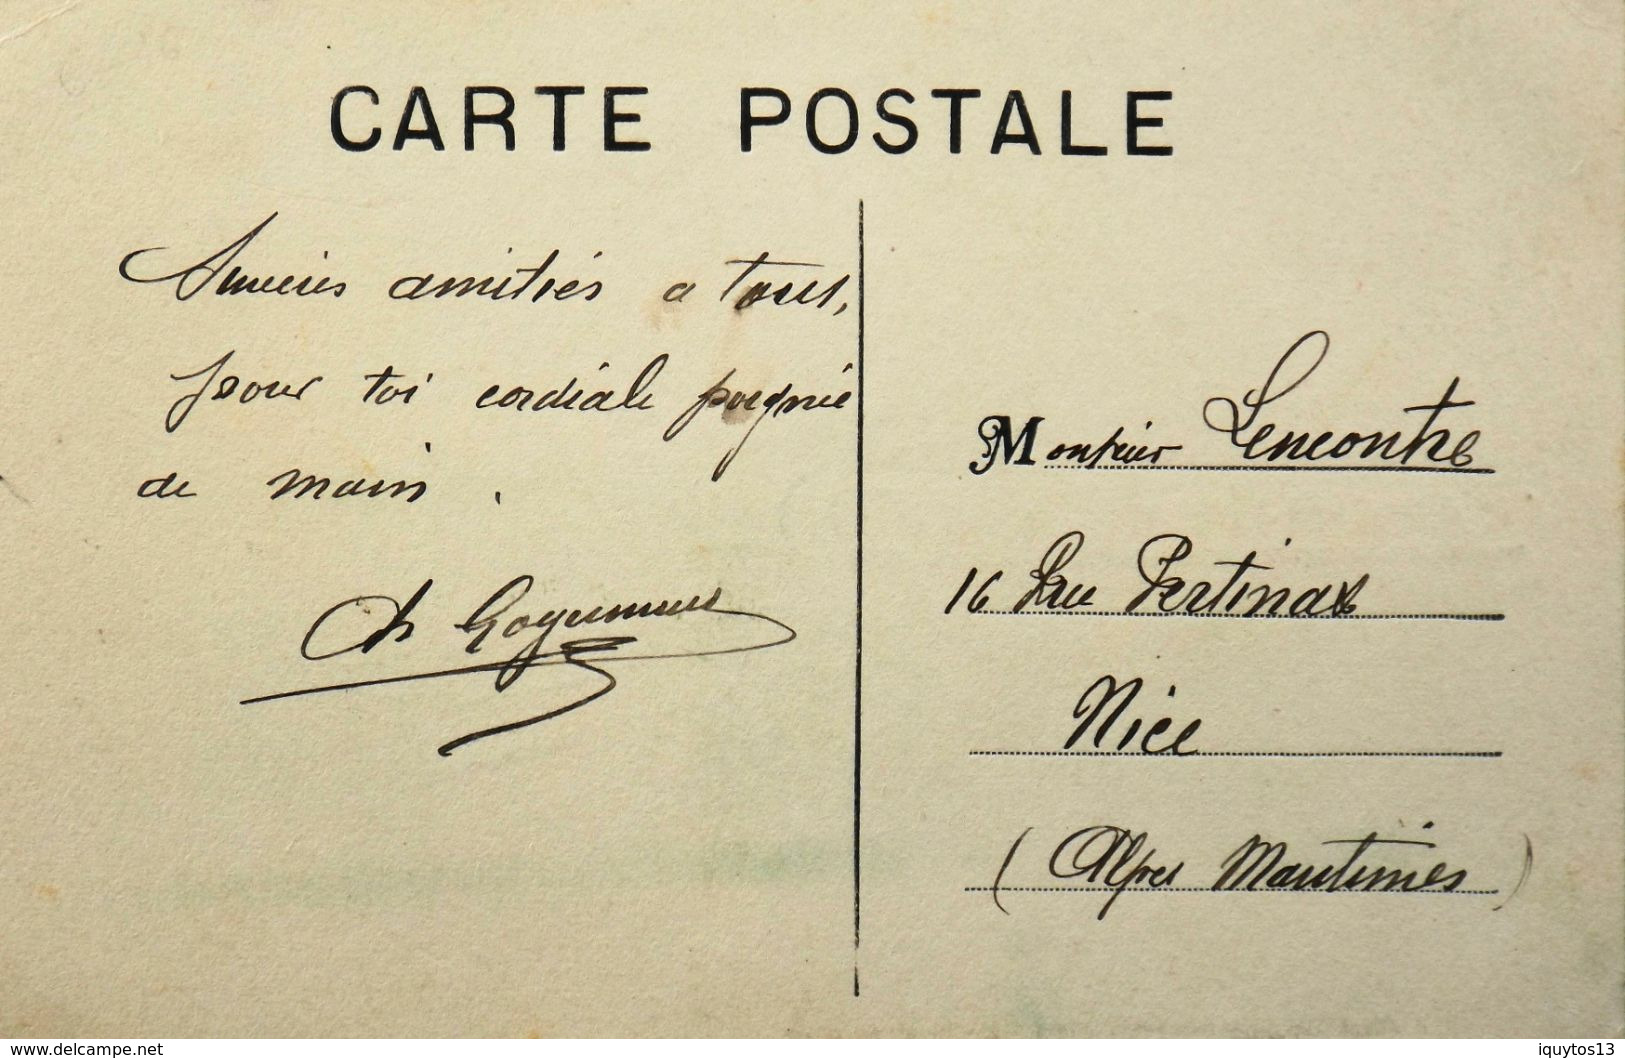 CARTE POSTALE
Sincères amitiés a tous,
pour toi cordiale poignée
de main.
Ch
Monsieur Lencontre
16 Rue Pertinax
Nice
(Alpes Maritimes)
www.delcampe.net
iquytos13